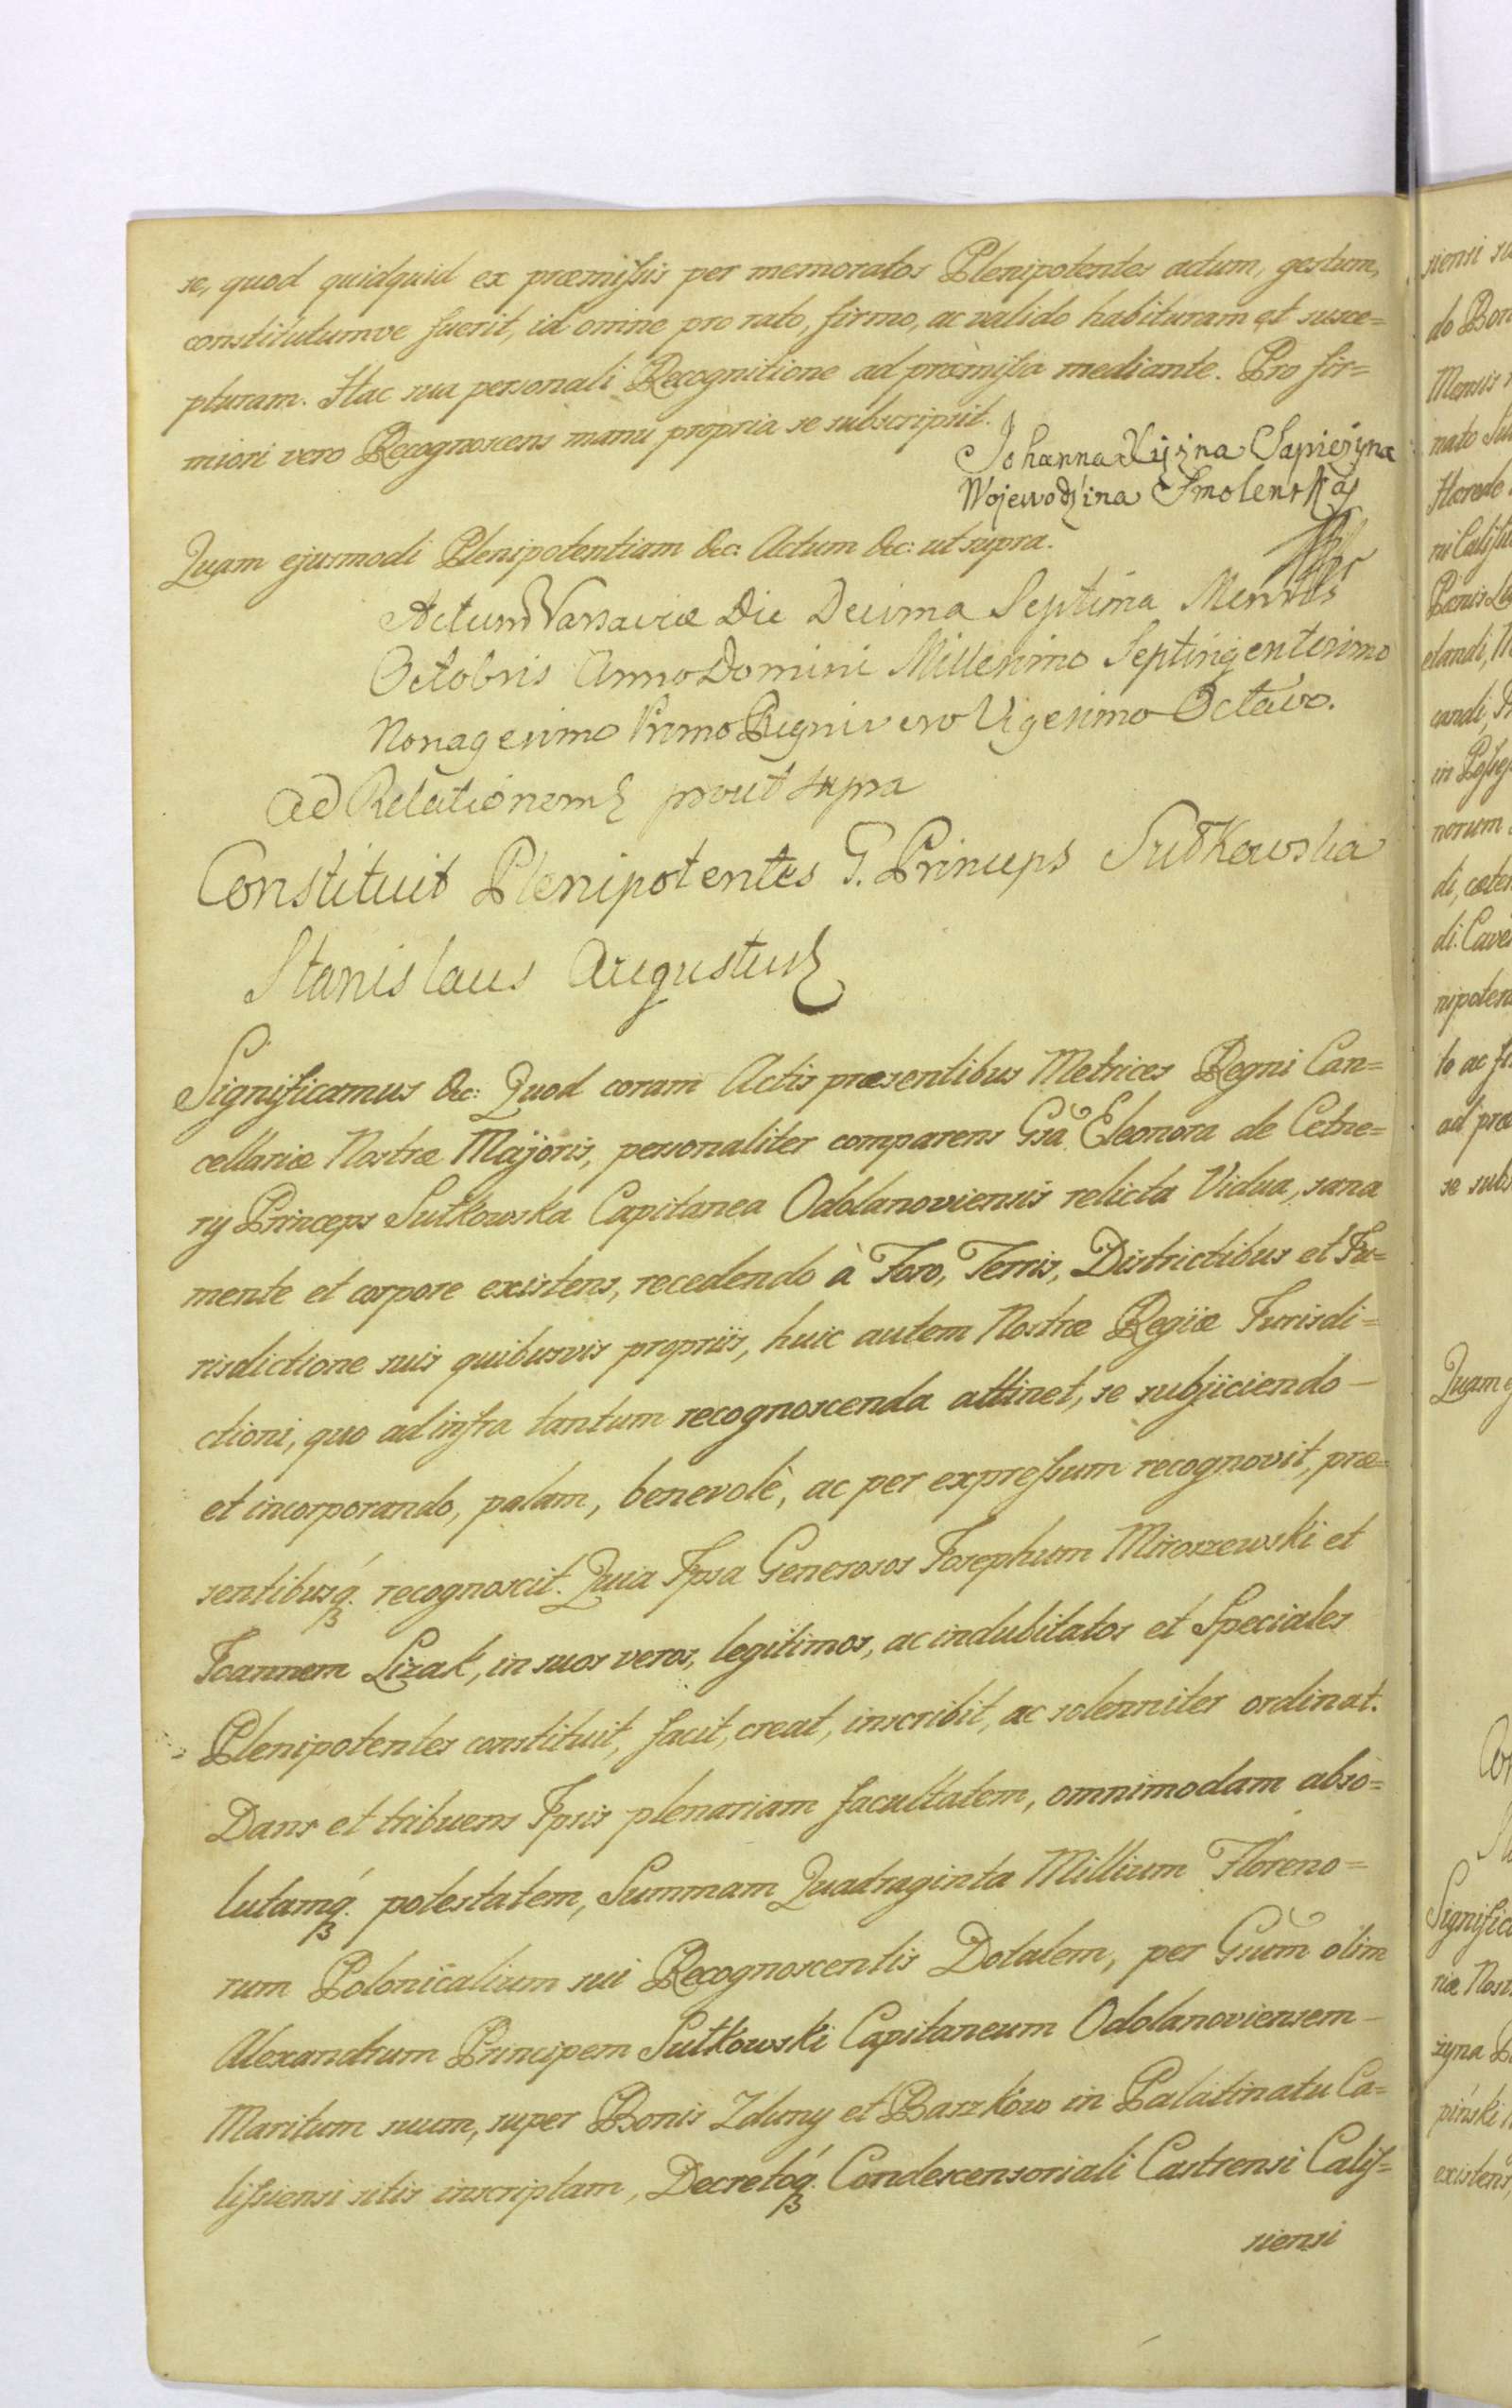 se, quod quidquid ex præmissis per memoratos Plenipotentes actum, gestum,
constitutumve fuerit, id omne pro rato, firmo, ac valido habituram et susce=
pturam. Hac sua personali Recognitione ad præmissa mediante. Pro fir=
miori vero Recognoscens manu propria se subscripsit.
Johanna Xiężna Sapieżyna
Wojewodzina Smoleńska
Quam ejusmodi Plenipotentiam &c: Actum &c: ut supra.
Actum Varsaviæ Die Decima Septima Mensis
Octobris Anno Domini Millesimo Septingentesimo
Nonagesimo Primo Regni vero Vigesimo Octavo.
Ad Relationem prout supra
Constituit Plenipotentes G. Princeps Sułkowska
Stanislaus Augustus
Significamus &c: Quod coram Actis præsentibus Metrices Regni Can=
cellariæ Nostræ Majoris, personaliter comparens Gsa Eleonora de Cetne=
rÿ Princeps Sułkowska Capitanea Odolanoviensis relicta Vidua, sana
mente et corpore existens, recedendo à Foro, Terris, Districtibus et Ju=
risdictione suis quibusvis propriis, huic autem Nostræ Regiæ Jurisdi=
ctioni, quo ad infra tantum recognoscenda attinet, se subjiciendo —
et incorporando, palam, benevolè, ac per expressum recognovit, præ=
sentibusq. recognoscit. Quia Ipsa Generosos Josephum Miroszewski et
Joannem Lizak, in suos veros, legitimos, ac indubitatos et Speciales
Plenipotentes constituit, facit, creat, inscribit, ac solenniter ordinat.
Dans et tribuens Ipsis plenariam facultatem, omnimodam abso=
lutamq. potestatem, Summam Quadraginta Millium Floreno=
rum Polonicalium sui Recognoscentis Dotalem, per Gsum olim
Alexandrum Principem Sułkowski Capitaneum Odolanoviensem —
Maritum suum, super Bonis Zduny et Baszków in Palatinatu Ca=
lissiensi sitis inscriptam, Decretoq. Condescensoriali Castrensi Calis=
siensi